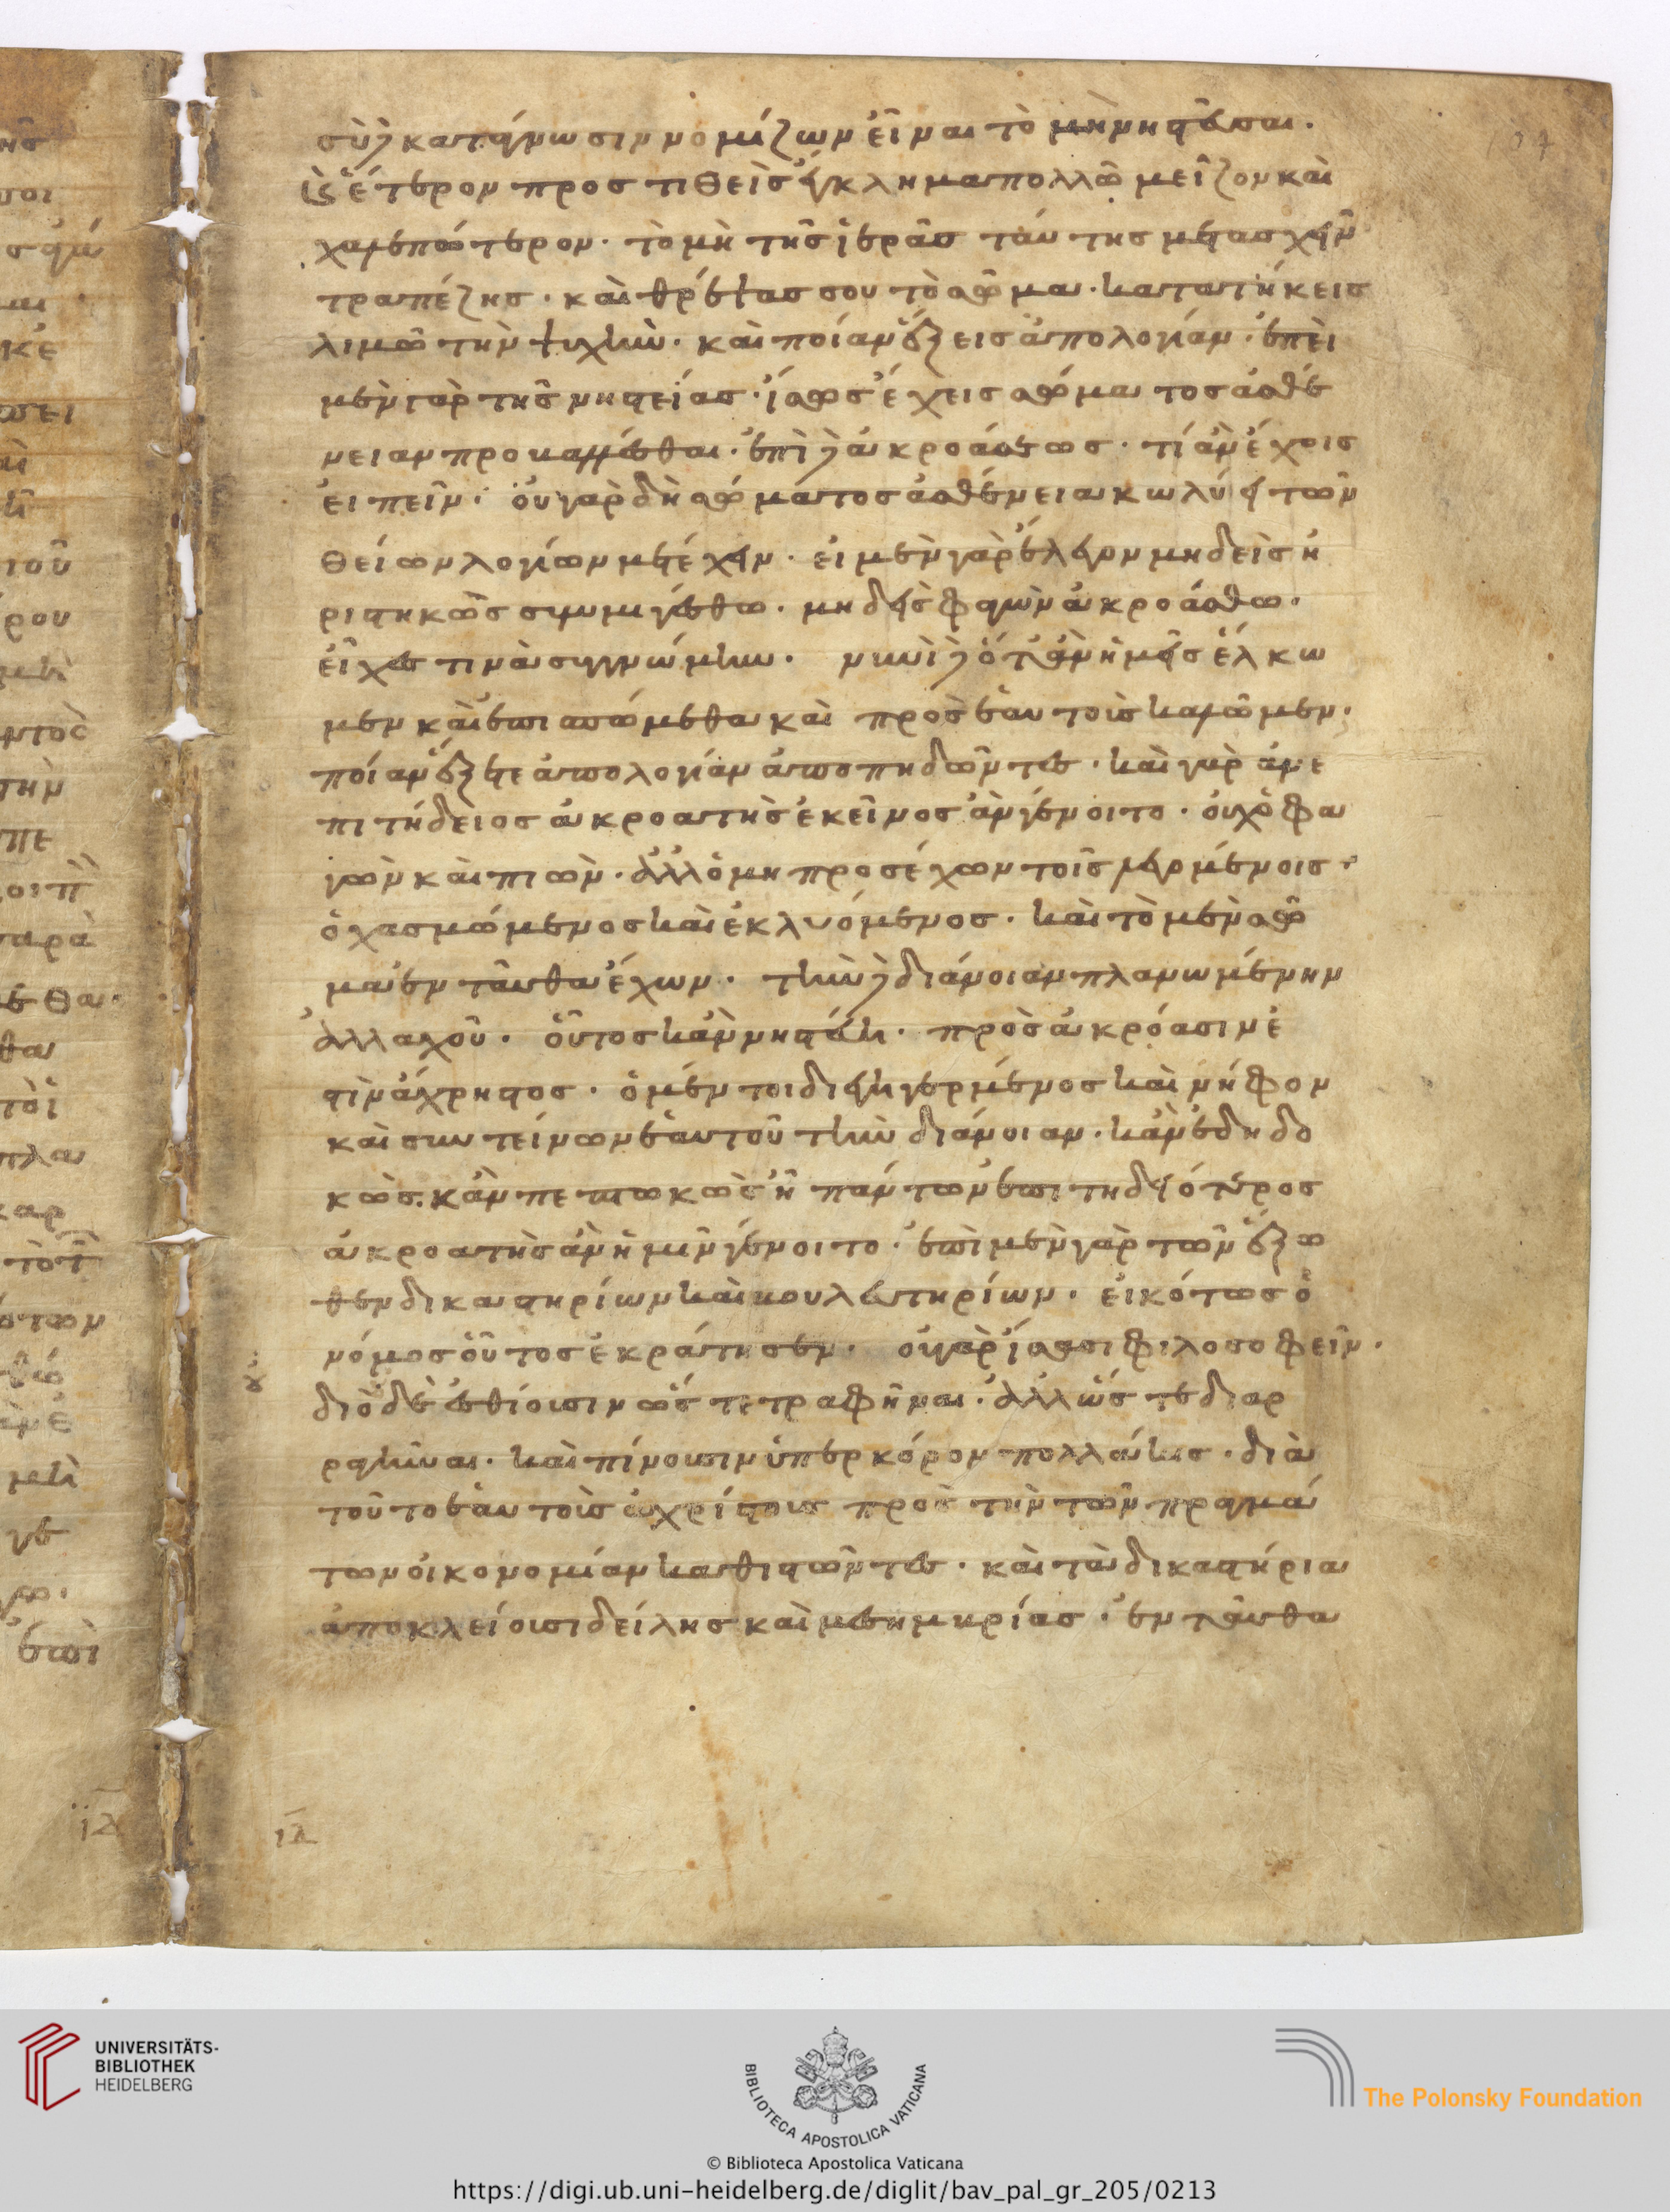 σὺ δὲ κατάγνωσιν νομίζων εἶναι τὸ μὴ νηστεῦσαι.
εἰς ἕτερον προστιθεὶς ἔγκλημα πολλῶ μεῖζον καὶ
χαλεπώτερον. τὸ μὴ τῆς ἱερᾶς ταύτης μετασχεῖν
τραπέζης. καὶ θρέψας σου τὸ σῶμα. κατατήκεις
λιμῶ τὴν ψυχὴν. καὶ ποίαν ἕξεις ἀπολογίαν. ἐπὶ
μὲν γὰρ τῆς νηστείας. ἴσως ἔχεις σώματος ἀσθέ
νειαν προβαλέσθαι. ἐπὶ δὲ ἀκροάσεως. τί ἂν ἔχοις
εἰπεῖν. οὐ γὰρ δὴ σώματος ἀσθένεια κωλύει τῶν
θείων λογίων μετέχειν. εἰ μὲν γὰρ ἔλεγον μηδεὶς ἠ
ριστηκὼς συμμιγέσθω. μηδεὶς φαγὼν ἀκροάσθω.
εἶχες τινὰ συγγνώμην. νυνὶ δὲ ὅταν ἡμεῖς ἕλκω
μεν καὶ ἐπισπώμεθα καὶ πρὸς ἑαυτοὺς καλῶμεν.
ποίαν ἕξετε ἀπολογίαν ἀποπηδῶντες. καὶ γὰρ ἀνε
πιτήδειος ἀκροατὴς ἐκεῖνος ἂν γένοιτο. οὐχ ὁ φα
γὼν καὶ πιὼν. ἀλλ' ὁ μὴ προσέχων τοῖς λεγομένοις.
ὁ χασμώμενος καὶ ἐκλυόμενος. καὶ τὸ μὲν σῶ
μα ἐνταῦθα ἔχων. τὴν δὲ διάνοιαν πλανωμένην
ἀλλαχοῦ. οὗτος κἂν νηστεύη. πρὸς ἀκρόασιν ἐ
στὶν ἄχρηστος. ὁ μέντοι διεγηγερμένος καὶ νήφον
καὶ συντείνων ἑαυτοῦ τὴν διάνοιαν. κἂν ἐδηδο
κὼς. κἂν πεπωκὼς ἦ πάντων ἐπιτηδειότερος
ἀκροατὴς ἂν ἡμῖν γένοιτο. ἐπὶ μὲν γὰρ τῶν ἔξω
θεν δικαστηρίων καὶ βουλευτηρίων. εἰκότως ὁ
νόμος οὗτος ἐκράτησεν. οὐ γὰρ ἴσασι φιλοσοφεῖν.
διὸ δὲ ἐσθίουσιν ὥς τε τραφῆναι. ἀλλ' ὥς τε διαρ
ραγῆναι. καὶ πίνουσιν ὑπὲρ κόρον πολλάκις. διὰ
τοῦτο ἑαυτοὺς ἀχρήστους πρὸς τὴν τῶν πραγμά
των οἰκονομίαν καθιστῶντες. καὶ τὰ δικαστήρια
ἀποκλείουσι δείλης καὶ μεσημβρίας. ἐνταῦθα
UNIVERSITÄTS-
BIBLIOTHEK
HEIDELBERG
BIBLIOTECA APOSTOLICA VATICANA
© Biblioteca Apostolica Vaticana
The Polonsky Foundation
https://digi.ub.uni-heidelberg.de/diglit/bav_pal_gr_205/0213